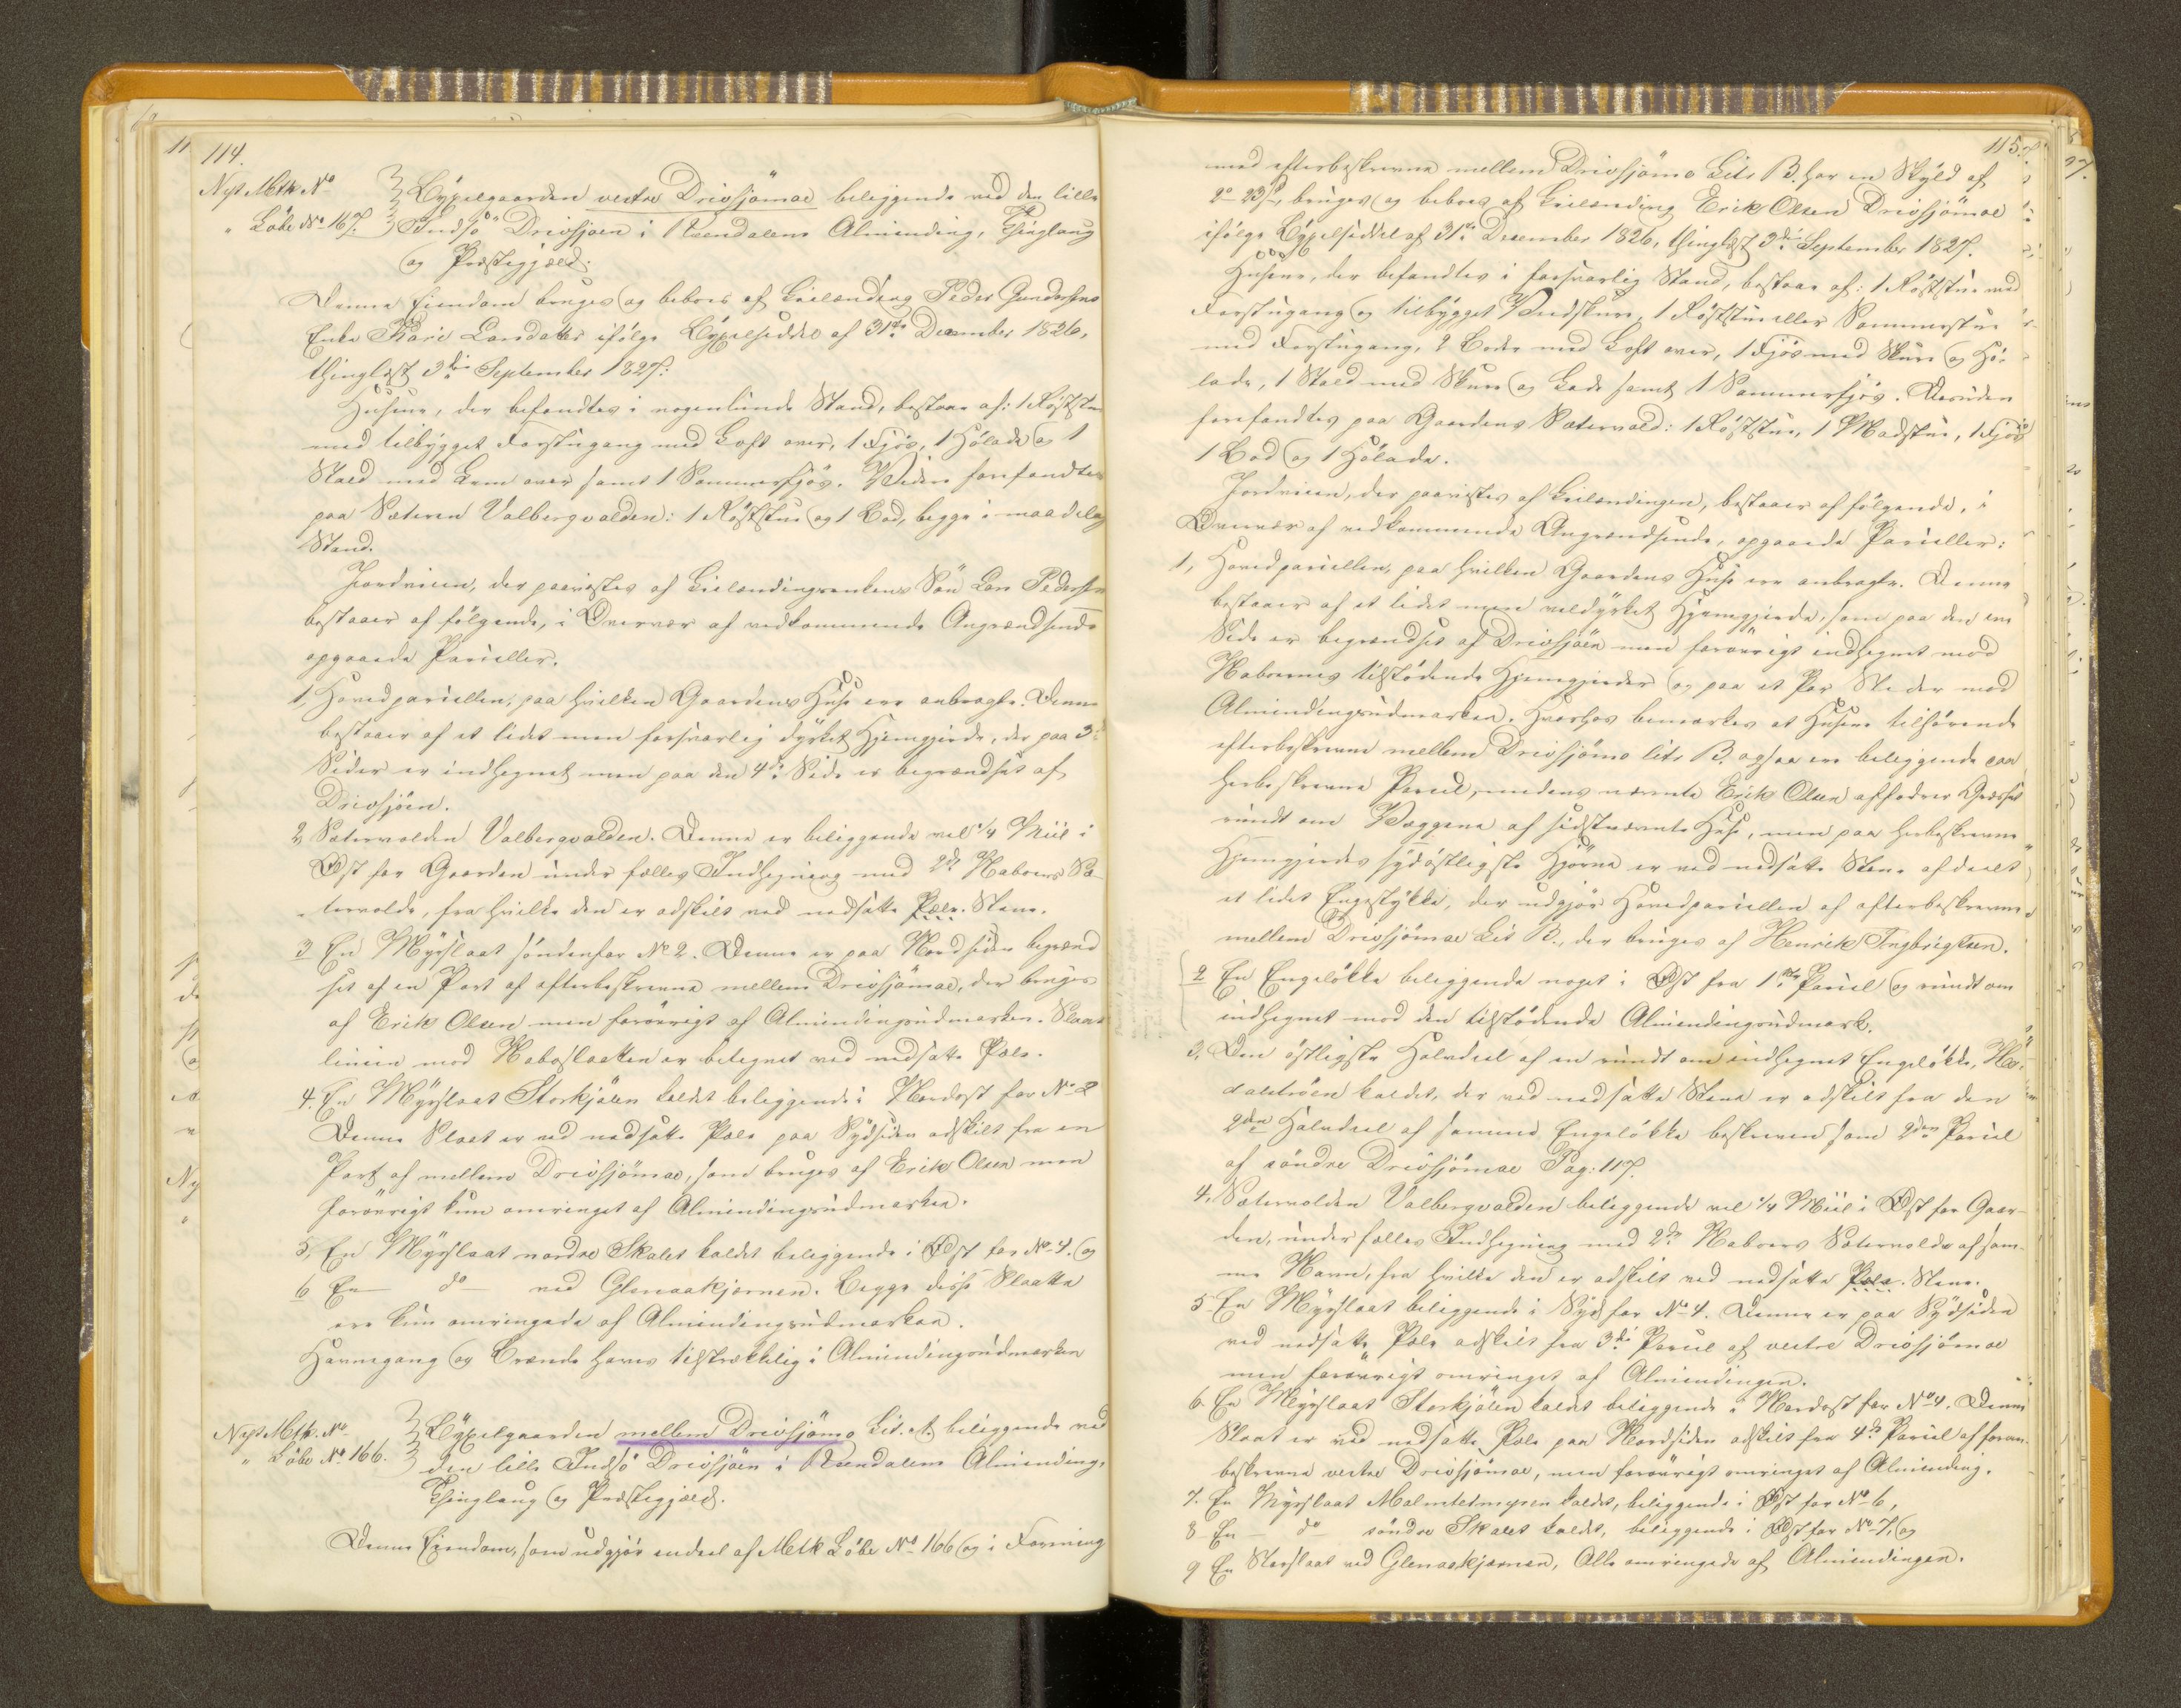 114.
Nyt Mtk No
" Løbe No 167.
Bÿxelgaarden vestre Drevsjömoe beliggende ved den lille
Indsö Drevsjöen i Rendalens Alminding, Thinglaug
og Præstegjæld.
Denne Eiendom bruges og beboes af Leilænding Peder Gundersens
Enke Kari Larsdatter ifølge Bÿxelseddel af 31te December 1826,
thinglæst 3die September 1827.
Husene, der befandtes i nogenlunde Stand, bestaar af: 1 Röststue
med tilbÿgget Forstugang med Loft over, 1 Fjös, 1 Hölade og 1
Stald med Lem over samt 1 Sommerfjös. Videre forefandtes
paa Sæteren Valbergvolden: 1 Röststue og 1 Bod, begge i maadelig
Stand.
Jordveien, der paavistes af Leilændingsenkens Sön Lars Pedersen
bestaaer af fölgende, i Overvær af vedkommende Angrændsende
opgaaede Parceller.
1, Hovedparcellen, paa hvilken Gaardens Huse ere anbragte. Denne
bestaaer af et lidet men forsvarlig dÿrket Hjemgjerde, der paa 3de
Sider er indhegnet men paa den 4de Side er begrændset af
Drevsjöen.
2 Sætervolden Valbergvolden. Denne er beliggende vel 1/4 Miil i
Øst for Gaarden under fælles Indhegning med 2de Naboers Sæ-
tervolde, fra hvilke den er adskilt ved nedsatte Pæle. Stene.
3 En Mÿrslaat söndenfor No 2. Denne er paa Nordsiden begrænd
set af en Part af efterbeskrevne mellem Drevsjömoe, der bruges
af Erik Olsen men forövrigt af Almindingsudmarken. Slaat
linien mod Naboslaatten er betegnet ved nedsatte Pæle.
4. En Mÿrslaat Storkjölen kaldet beliggende i Nordost for No 2
Denne Slaat er ved nedsatte Pæle paa Sÿdsiden adskilt fra en
Part af mellem Drevsjömoe, som bruges af Erik Olsen men
forövrigt kun omringet af Almindingsudmarken.
5, En Mÿrslaat nordre Skalet kaldet beliggende i Øst for No 4. og
6 En do ved Glenaakjærnen. Begge disse Slaatte
ere kun omringede af Almindingsudmarken.
Havnegang og Brænde haves tilstrækkelig i Almindingsudmarken
Nyt Mtk. No
" Löbe No 166.
Bÿxelgaarden mellem Drevsjömo Lit. A. beliggende ved
den lille Indsö Drevsjöen i Rendalens Alminding,
Thinglaug og Præstegjæld.
Denne Eiendom, som udgjör endeel af Mtk Löbe No 166 og i Forening
115.
med efterbeskrevne mellem Drevsjömo Lits B. har en Skÿld af
bruges og beboes af Leilænding Erik Olsen Drevsjömoe
ifölge Bÿxelseddel af 31te December 1826, thinglæst 3die September 1827.
Husene, der befandtes i forsvarlig Stand, bestaar af: 1 Röststue med
Forstugang og tilbÿgget Vedskuur, 1 Röststue eller Sommerstue
med Forstugang, 2 Boder med Loft over, 1 Fjös med Skuur og Hö-
lade, 1 Stald med Skuur og Lade samt 1 Sommerfjös. Desuden
forefandtes paa Gaardens Sætervold: 1 Röststue, 1 Madstue, 1 Fjös
1 Bod og 1 Hölade.
Jordveien, der paavistes af Leilændingen, bestaaer af fölgende, i
Overvær af vedkommende Angrændsende, opgaaede Parceller:
1, Hovedparcellen, paa hvilken Gaardens Huse ere anbragte. Denne
bestaaer af et lidet men veldÿrket Hjemgjerde, som paa den ene
Side er begrændset af Drevsjöen men forövrigt indhegnet mod
Naboernes tilstödende Hjemgjerder og paa et Par Steder mod
Almindingsudmarken. Hverhos bemærkes at Husene tilhörende
efterbeskrevne mellem Drevsjömo Lits B. ogsaa ere beliggende paa
herbeskrevne Parcel, medens nævnte Erik Olsen affodrer Græsset
rundt om Væggene af sidstnævnte Huse, men paa herbeskrevne
Hjemgjerdes sÿdöstligste Hjörne er ved nedsatte Stene afdeelt
et lidet Engestÿkke, der udgjör Hovedparcellen af efterbeskrevne
mellem Drevsjömoe Lit B., der bruges af Henrik Ingbrigtsen.
2 En Engelökke beliggende noget i Øst fra 1ste Parcel og rundt om
indhegnet mod den tilstödende Almindingsudmark.
3, Den östligste Halvdeel af en rundt om indhegnet Engelökke,
kaldet, der ved nedsatte Stene er adskilt fra den
2den Halvdeel af samme Engelökke beskreven som 2den Parcel
af söndre Drevsjömoe Pag: 117.
4, Sætervolden Valbergvolden beliggende vel 1/4 Miil i Øst for Gaar-
den, under fælles Indhegning med 2de Naboers Sætervolde af sam-
me Navn, fra hvilke den er adskilt ved nedsatte Pæle. Stene.
5 En Mÿrslaat beliggende i Sÿd for No 4. Denne er paa Sÿdsiden
ved nedsatte Pæle adskilt fra 3die Parcel af vestre Drevsjömoe
men forövrigt omringet af Almindingen.
6. En Mÿrslaat Storkjölen kaldet beliggende i Nordost for No 4. Denne
Slaat er ved nedsatte Pæle paa Nordsiden adskilt fra 4de Parcel af foran-
beskrevne vestre Drevsjömoe, men forövrigt omringet af Alminding.
7. En Mÿrslaat Malmtelmyren kaldet, beliggende i Øst for No 6,
8 En do söndre Skalet kaldet, beliggende i Øst for No 7, og
9 En Storslaat ved Glenaakjærnen, Alle omringede af Almindingen.